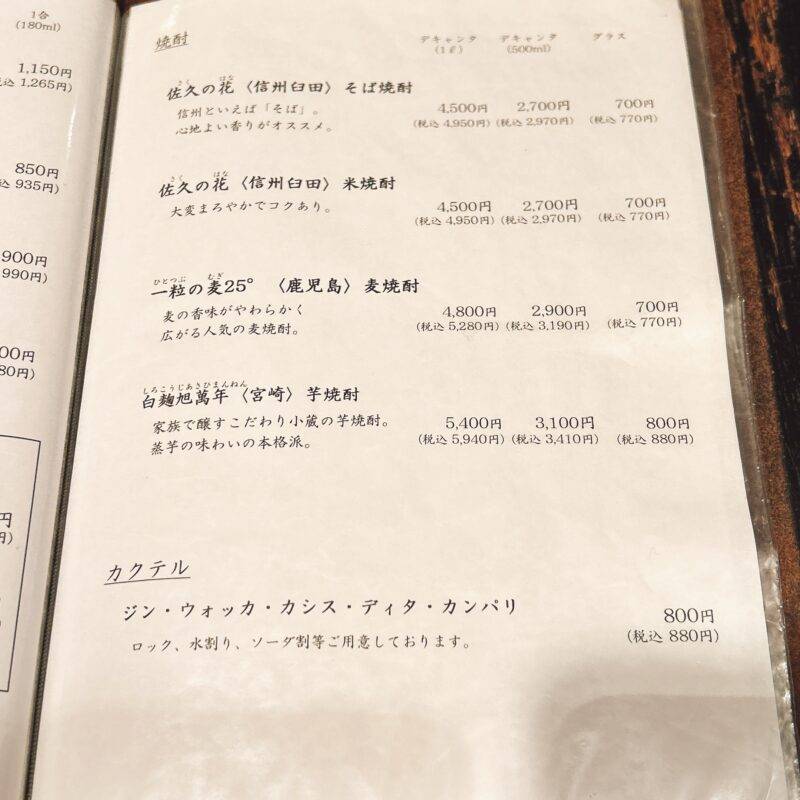 1合
(180ml)
1,150円
(税込 1,265円)
850円
935円)
900円
990円)
00円
80円)
円
円)
焼酎
デキャンタ (1ℓ) デキャンタ (500ml) グラス
さく はな
佐久の花〈信州臼田〉そば焼酎
信州といえば「そば」。
心地よい香りがオススメ。
4,500円 2,700円 700円
(税込 4,950円) (税込 2,970円) (税込 770円)
さく はな
佐久の花〈信州臼田〉米焼酎
大変まろやかでコクあり。
4,500円 2,700円 700円
(税込 4,950円) (税込 2,970円) (税込 770円)
ひとつぶ むぎ
一粒の麦25° 〈鹿児島〉麦焼酎
麦の香味がやわらかく
広がる人気の麦焼酎。
4,800円 2,900円 700円
(税込 5,280円) (税込 3,190円) (税込 770円)
しろこうじあさひまんねん
白麹旭萬年〈宮崎〉芋焼酎
家族で醸すこだわり小蔵の芋焼酎。
蒸芋の味わいの本格派。
5,400円 3,100円 800円
(税込 5,940円) (税込 3,410円) (税込 880円)
カクテル
ジン・ウォッカ・カシス・ディタ・カンパリ
800円
ロック、水割り、ソーダ割等ご用意しております。
(税込 880円)